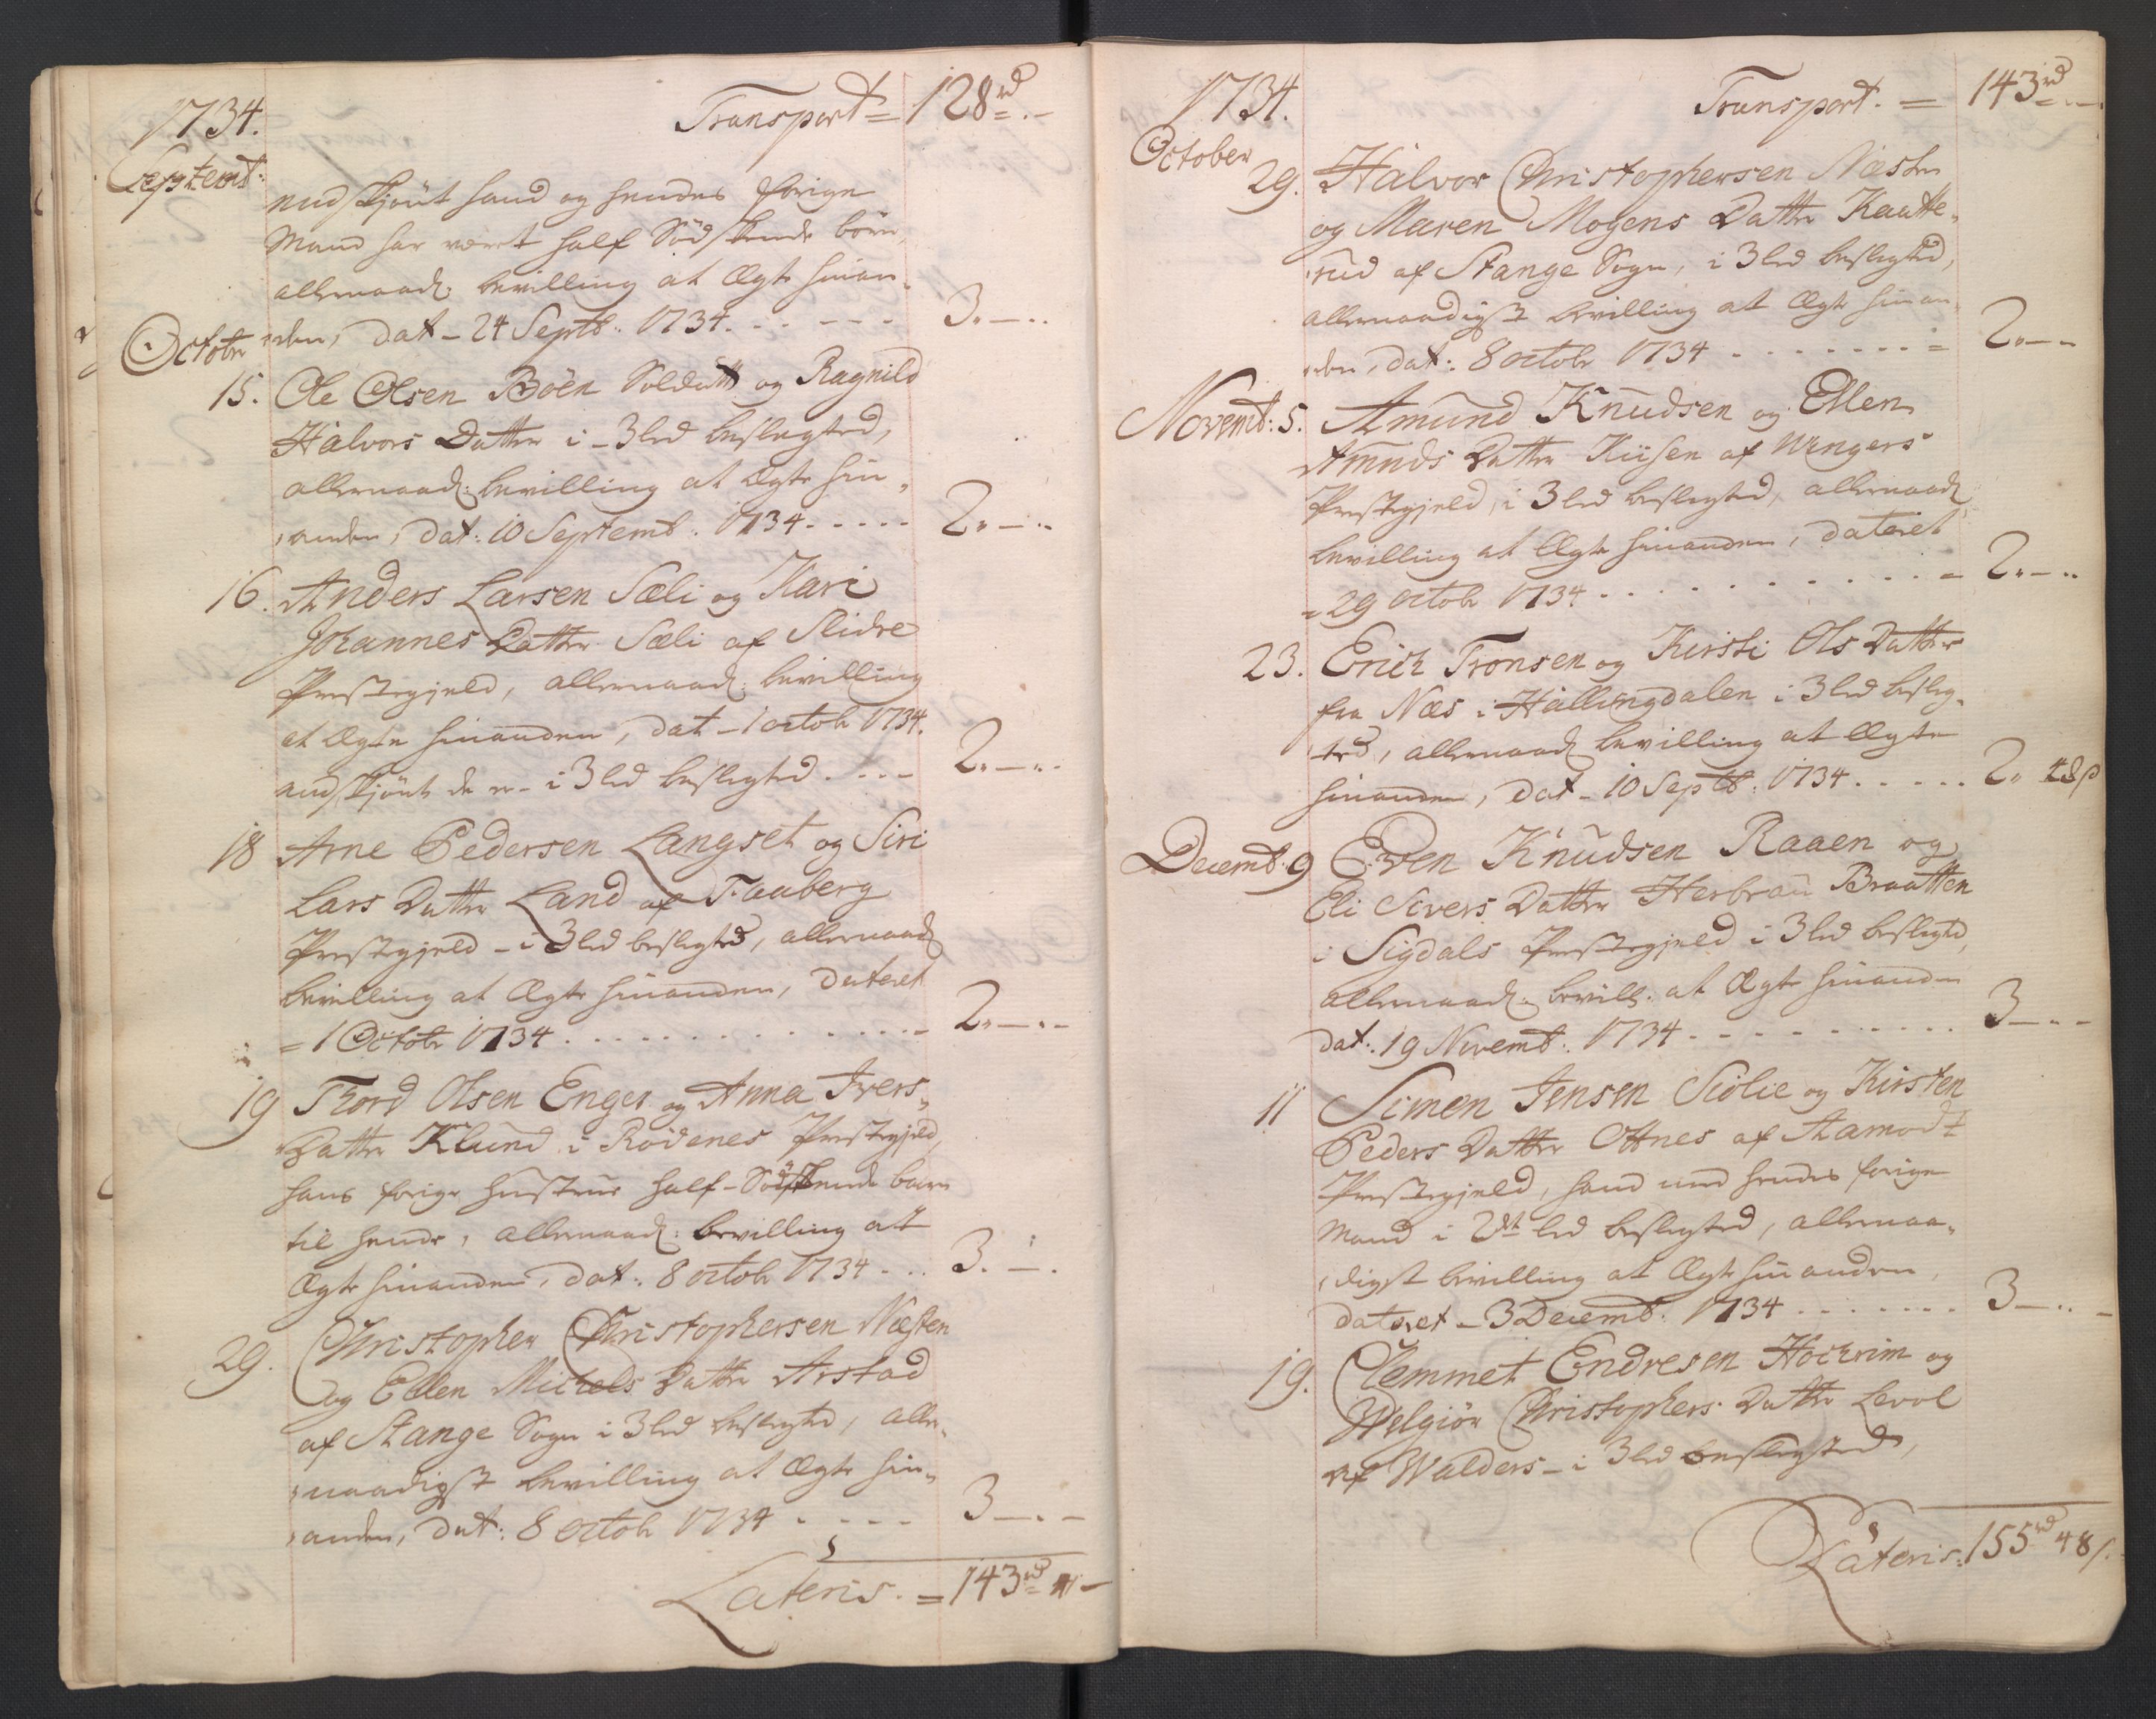 1734.
Transport = 128 rd. –
Septemb:
endskjönt hand og hendes forige
Mand har været half Södskende börn,
allernaad: bevilling at Ægte hinan-
den, dat – 24 Septb: 1734. . . – – – 3. – ..
Octobr
15. Ole Olsen Böen Soldatt og Ragnild
Halvors Datter i – 3 led beslegted,
allernaad: bevilling at Ægte hin-
anden, dat: 10 Septemb: 1734. . . . . 2. – ..
16. Anders Larsen Sæli og Kari
Johannes Datter Sæli af Slidre
Prestegjeld, allernaad: bevilling
at Ægte hinanden, dat – 1 octob 1734.
endskjönt de er – i 3 led beslegted. . . – 2. – ..
18 Arne Pedersen Langset og Siri
Lars Datter Land af Faaberg
Prestegjeld – i 3 led beslegted, allernaad
bevilling at Ægte hinanden, dateret
= 1 Octobr 1734. . . . . . . . . . . . . 2. – . –
19 Thord Olsen Enger og Anna Ivers-
Datter Klund i Rödenes Prestegjeld,
hans forige Hustrue half-Södskende barn
til hende, allernaad: bevilling at
Ægte hinanden, dat: 8 octob 1734. . . 3. – .
29. Christopher Christophersen Næsten
og Ellen Michels Datter Arstad
af Stange Sogn i 3 led beslegted, aller-
naadigst bevilling at Ægte hin-
anden, dat: 8 octob 1734 . . – – – 3 – . –
Lateris. = 143 rd –
1734.
Transport. = 143 rd – ..
October
29. Halvor Christophersen Næsten
og Maren Mogens Datter Kaatte-
rud af Stange Sogn, i 3 led beslegted,
allernaadigst bevilling at Ægte hinan-
den, dat: 8 octob 1734 . . . . . . . = 2. – –
Novemb: 5. Amund Knudsen og Ellen
Amunds Datter Kiisen af Wingers
Prestegjeld, i 3 led beslegted, allernaad
bevilling at Ægte hinanden, dateret
= 29 octob 1734. . . . . . . . . . = 2. – ..
23. Erich Tronsen og Kirsti Ols Datter
fra Næs i Hallingdalen i 3 led besleg-
ted, allernaad bevilling at Ægte
hinanden, dat – 10 Septb: 1734. . . . . 2. 48 s
Decemb. 9 Even Knudsen Raaen og
Eli Sivers Datter Herbrau Braatten
i Sigdals Prestegjeld i 3 led beslegted,
allernaad: bevill: at Ægte hinanden
dat: 19 Novemb: 1734 . – – – – . . . . 3 – . –
11 Simen Jensen Siölie og Kirsten
Peders Datter Ottnes af Aamodt
Prestegjeld, hand med hendes forige
Mand i 2det led beslegted, allernaa-
digst bevilling at Ægte hinanden,
dateret – 3 Decemb: 1734. . . . . . . 3 – .. –
19. Clemmet Endresen Höchrim og
Welgiör Christophers Datter Levol
af Walders – i 3 led beslegted,
Lateris: 155 rd 48 s.